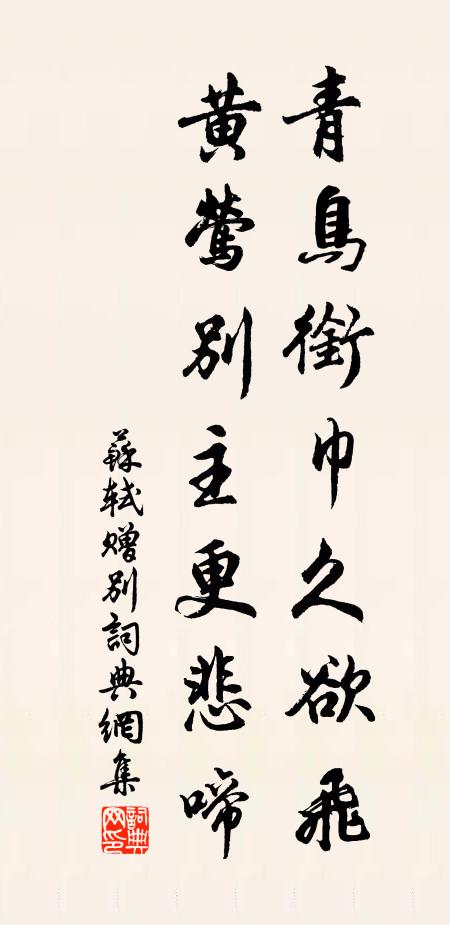 青鳥銜巾久欲飛
黃鶯別主更悲啼
蘇軾贈別詞典網集
詞典網印